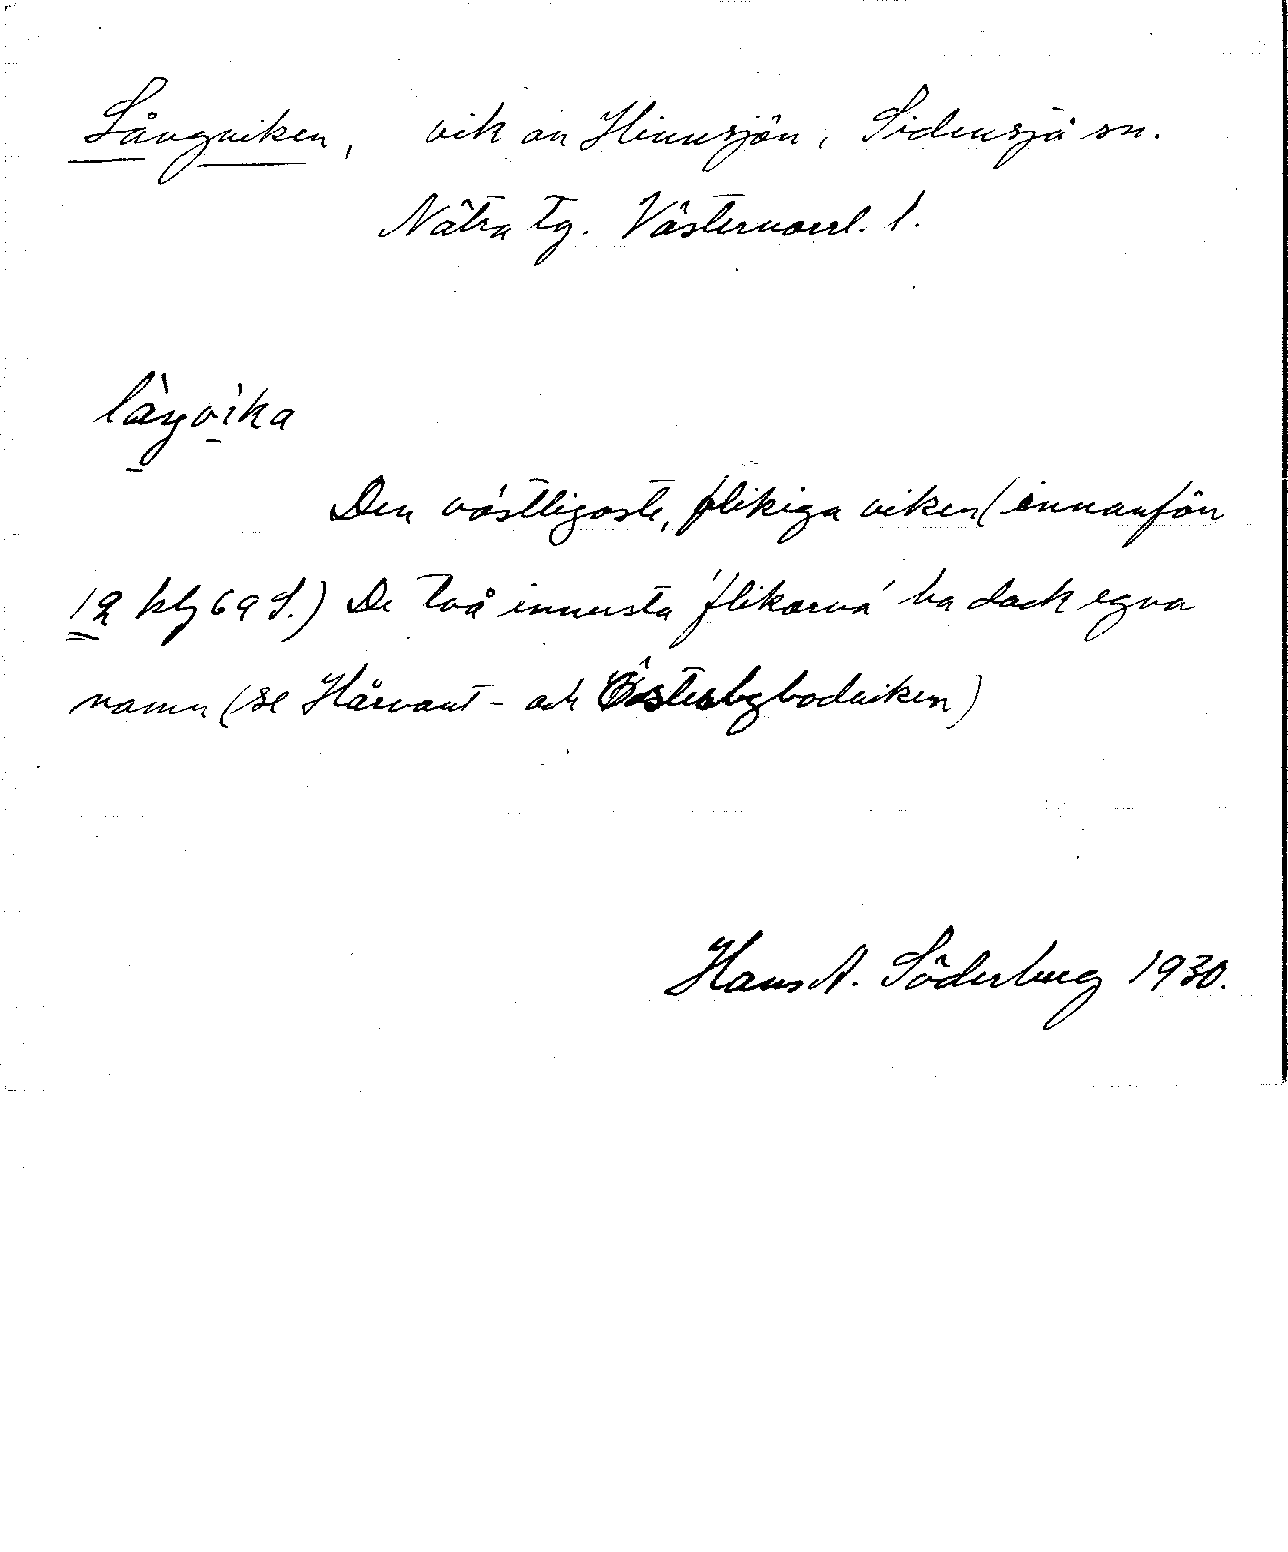 Långviken, vik av Hinnsjön, Sidensjö sn.
Nätra tg. Västernorrl. l.
làŋvìka
Den västligaste, flikiga viken (innanför
19 kbg 69 S.) De två innersta 'flikarna' ha dock egna
namn (se Hårvant- och Österbybodviken)
Hans A. Söderberg 1930.